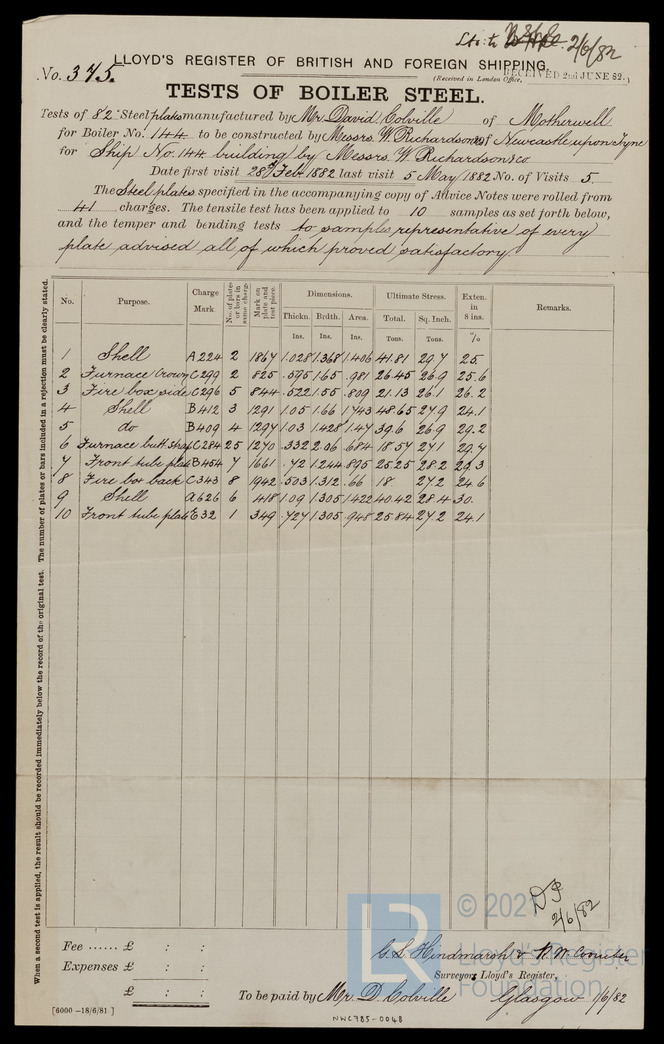 2/6/82
LLOYD'S REGISTER OF BRITISH AND FOREIGN SHIPPING.
No. 375.
(Received in London Office, RECEIVED 2nd JUNE 82.)
TESTS OF BOILER STEEL.
Tests of 82 Steel plates manufactured by Mr David Colville of Motherwell
for Boiler No. 144 to be constructed by Messrs. W. Richardson & Co of Newcastle upon Tyne
for Ship No. 144 building by Messrs W Richardson & Co
Date first visit 28th Feby 1882 last visit 5 May 1882 No. of Visits 5.
The Steel plates specified in the accompanying copy of Advice Notes were rolled from
41 charges. The tensile test has been applied to 10 samples as set forth below,
and the temper and bending tests to samples representative of every
plate advised all of which proved satisfactory
When a second test is applied, the result should be recorded immediately below the record of the original test. The number of plates or bars included in a rejection must be clearly stated.
No. Purpose. Charge Mark No. of plates or bars in same charge Mark on plate and test piece. Dimensions. Ultimate Stress. Exten. in 8 ins. Remarks.
Thickn. Brdth. Area. Total. Sq. Inch.
Ins. Ins. Ins. Tons. Tons. %
1 Shell A224 2 1867 1.028 1.368 1.406 41.81 29.7 25
2 Furnace Crown C299 2 825 .595 1.65 .981 26.45 26.9 25.6
3 Fire box side C296 5 844 .522 1.55 .809 21.13 26.1 26.2
4 Shell B412 3 1291 1.05 1.66 1.743 48.65 27.9 24.1
5 do B409 4 1297 1.03 1.428 1.47 39.6 26.9 29.2
6 Furnace butt strap C284 25 1270 .332 2.06 .684 18.57 27.1 29.7
7 Front tube plate B454 7 1661 .72 1.244 .895 25.25 28.2 29.3
8 Fire box back C343 8 1942 .503 1.312 .66 18 27.2 24.6
9 Shell A626 6 418 1.09 1.305 1.422 40.42 28.4 30.
10 Front tube plate C32 1 349 .727 1.305 .948 25.84 27.2 24.1
2/6/82
© 2021
LR
Lloyd's Register
Foundation
Fee ...... £ : :
Expenses £ : :
£ : :
G. S. Hindmarsh & R. W. Coomber
Surveyors Lloyd's Register,
To be paid by Mr. D. Colville Glasgow 1/6/82
[6000 —18/6/81.]
NWC785-0048